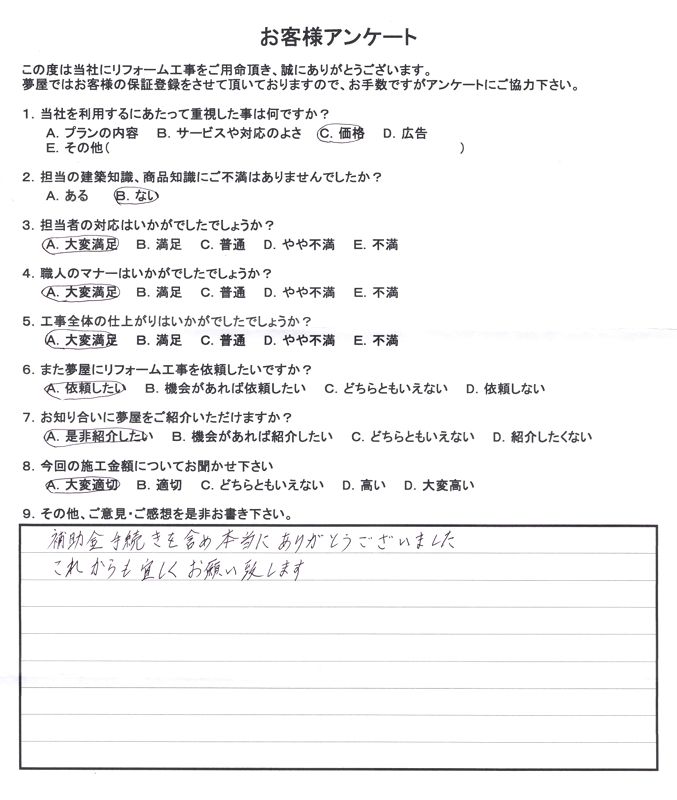 お客様アンケート
この度は当社にリフォーム工事をご用命頂き、誠にありがとうございます。
夢屋ではお客様の保証登録をさせて頂いておりますので、お手数ですがアンケートにご協力下さい。
1. 当社を利用するにあたって重視した事は何ですか？
A. プランの内容 B. サービスや対応のよさ C. 価格 D. 広告
E. その他( )
2. 担当の建築知識、商品知識にご不満はありませんでしたか？
A. ある B. ない
3. 担当者の対応はいかがでしたでしょうか？
A. 大変満足 B. 満足 C. 普通 D. やや不満 E. 不満
4. 職人のマナーはいかがでしたでしょうか？
A. 大変満足 B. 満足 C. 普通 D. やや不満 E. 不満
5. 工事全体の仕上がりはいかがでしたでしょうか？
A. 大変満足 B. 満足 C. 普通 D. やや不満 E. 不満
6. また夢屋にリフォーム工事を依頼したいですか？
A. 依頼したい B. 機会があれば依頼したい C. どちらともいえない D. 依頼しない
7. お知り合いに夢屋をご紹介いただけますか？
A. 是非紹介したい B. 機会があれば紹介したい C. どちらともいえない D. 紹介したくない
8. 今回の施工金額についてお聞かせ下さい
A. 大変適切 B. 適切 C. どちらともいえない D. 高い D. 大変高い
9. その他、ご意見・ご感想を是非お書き下さい。
補助金手続きを含め本当にありがとうございました
これからも宜しくお願い致します